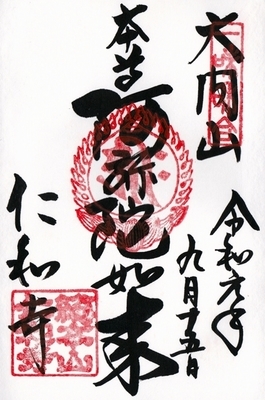 大内山
令和元年
九月十五日
本尊
阿弥陀如来
仁和寺